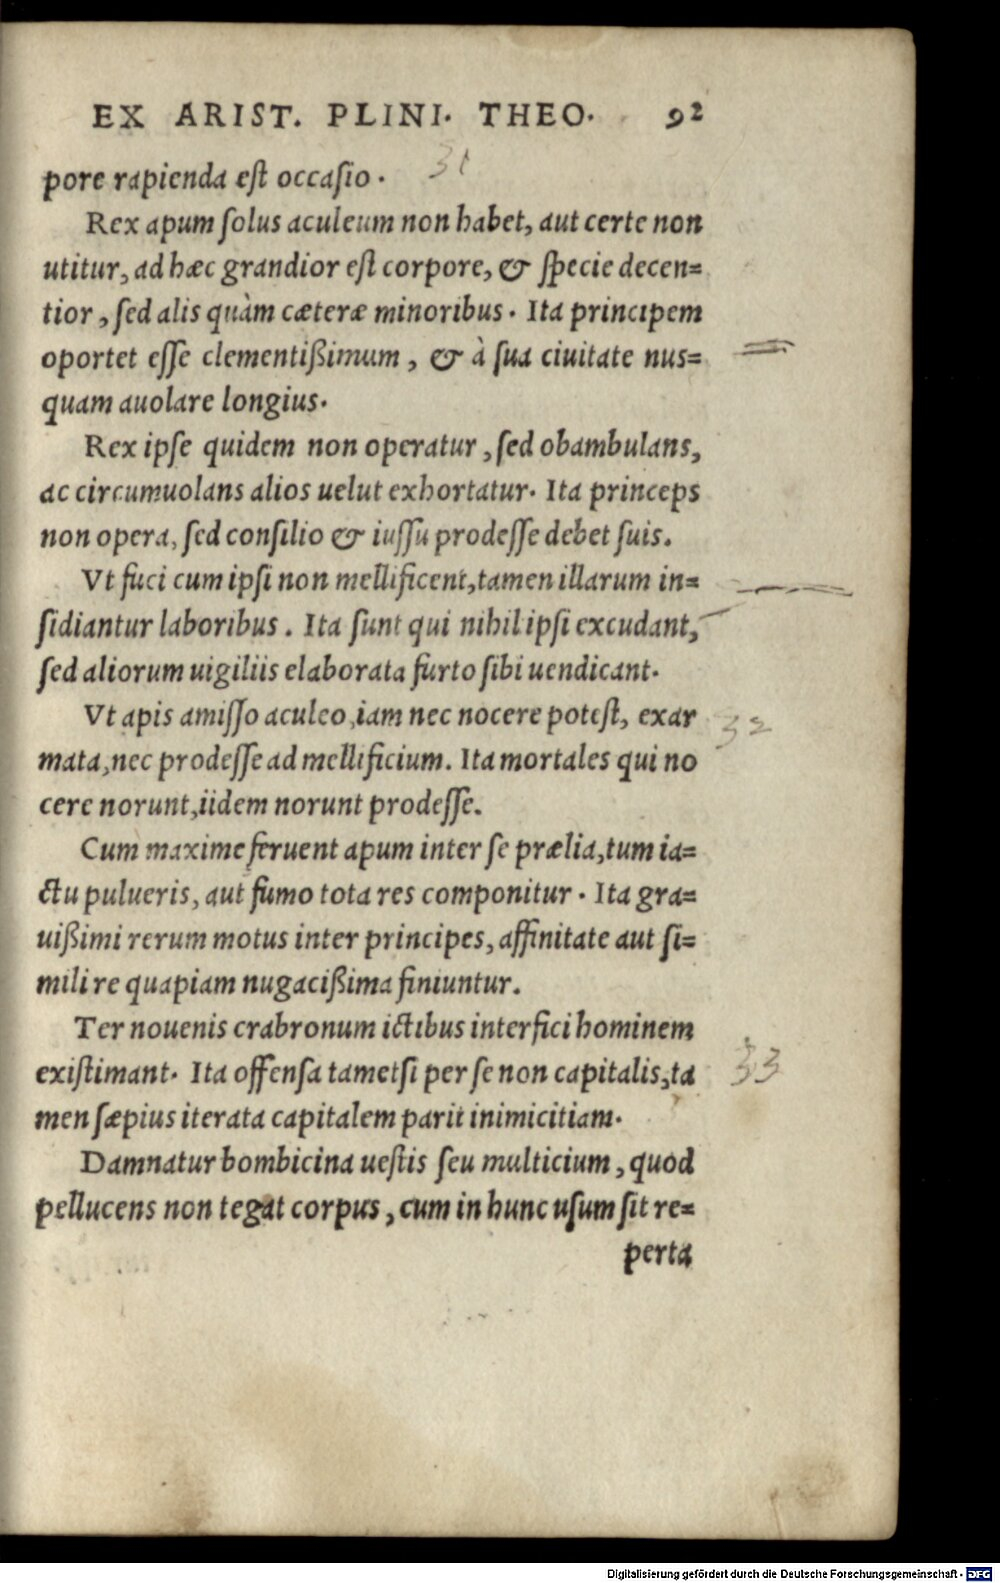 EX ARIST. PLINI. THEO. 92
31
pore rapienda est occasio.
Rex apum solus aculeum non habet, aut certe non
utitur, ad hæc grandior est corpore, & specie decen=
tior, sed alis quàm cæteræ minoribus. Ita principem
oportet esse clementißimum, & à sua ciuitate nus=
quam auolare longius.
Rex ipse quidem non operatur, sed obambulans,
ac circumuolans alios uelut exhortatur. Ita princeps
non opera, sed consilio & iussu prodesse debet suis.
Vt fuci cum ipsi non mellificent, tamen illarum in=
sidiantur laboribus. Ita sunt qui nihil ipsi excudant,
sed aliorum uigiliis elaborata furto sibi uendicant.
Vt apis amisso aculeo, iam nec nocere potest, exar
32
mata, nec prodesse ad mellificium. Ita mortales qui no
cere norunt, iidem norunt prodesse.
Cum maxime feruent apum inter se prælia, tum ia=
ctu pulueris, aut fumo tota res componitur. Ita gra=
uißimi rerum motus inter principes, affinitate aut si=
mili re quapiam nugacißima finiuntur.
Ter nouenis crabronum ictibus interfici hominem
existimant. Ita offensa tametsi per se non capitalis, ta
33
men sæpius iterata capitalem parit inimicitiam.
Damnatur bombicina uestis seu multicium, quod
pellucens non tegat corpus, cum in hunc usum sit re=
perta
Digitalisierung gefördert durch die Deutsche Forschungsgemeinschaft - DFG